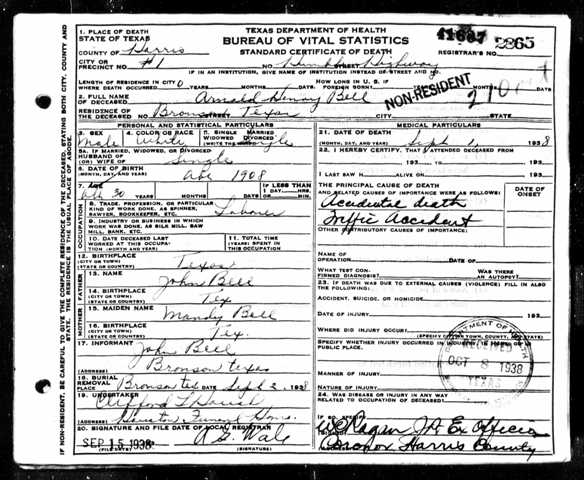 TEXAS DEPARTMENT OF HEALTH
BUREAU OF VITAL STATISTICS
STANDARD CERTIFICATE OF DEATH
REGISTRAR'S NO. 2265
1. PLACE OF DEATH
STATE OF TEXAS
COUNTY OF Harris
CITY OR PRECINCT NO. #1
NO. Humble STREET Highway
IF IN AN INSTITUTION, GIVE NAME OF INSTITUTION INSTEAD OF STREET AND NO.
LENGTH OF RESIDENCE WHERE DEATH OCCURRED YEARS MONTHS DAYS
HOW LONG IN U. S. IF FOREIGN BORN? YEARS MONTHS DAYS
NON-RESIDENT
2. FULL NAME OF DECEASED Henry Bell
RESIDENCE OF THE DECEASED Bronson Texas
STREET CITY STATE
PERSONAL AND STATISTICAL PARTICULARS
3. SEX Male
4. COLOR OR RACE White
5. SINGLE MARRIED WIDOWED DIVORCED (WRITE THE WORD) Single
5A. IF MARRIED, WIDOWED, OR DIVORCED
HUSBAND OF (OR) WIFE OF Single
6. DATE OF BIRTH (MONTH, DAY, AND YEAR) Abt 1908
7. AGE Abt 30 YEARS MONTHS DAYS
IF LESS THAN 1 DAY HRS. MIN.
OCCUPATION
8. TRADE, PROFESSION, OR PARTICULAR KIND OF WORK DONE, AS SPINNER, SAWYER, BOOKKEEPER, ETC. Laborer
9. INDUSTRY OR BUSINESS IN WHICH WORK WAS DONE, AS SILK MILL, SAW MILL, BANK, ETC.
10. DATE DECEASED LAST WORKED AT THIS OCCUPATION (MONTH AND YEAR)
11. TOTAL TIME (YEARS) SPENT IN THIS OCCUPATION
12. BIRTHPLACE (CITY OR TOWN) (STATE OR COUNTRY) Texas
FATHER
13. NAME John Bell
14. BIRTHPLACE (CITY OR TOWN) (STATE OR COUNTRY) Tex
MOTHER
15. MAIDEN NAME Mandy Bell
16. BIRTHPLACE (CITY OR TOWN) (STATE OR COUNTRY) Tex.
17. INFORMANT John Bell
ADDRESS Bronson Texas
18. BURIAL REMOVAL
PLACE Bronson Tex DATE Sept 2, 1938
19. UNDERTAKER Clifford
ADDRESS Houston Funeral Home
20. SIGNATURE AND FILE DATE OF LOCAL REGISTRAR
SEP 15 1938
(FILE DATE) (SIGNATURE)
MEDICAL PARTICULARS
21. DATE OF DEATH (MONTH, DAY, AND YEAR) Sept 1, 1938
22. I HEREBY CERTIFY, THAT I ATTENDED DECEASED FROM
I LAST SAW H ALIVE ON
THE PRINCIPAL CAUSE OF DEATH AND RELATED CAUSES OF IMPORTANCE WERE AS FOLLOWS:
DATE OF ONSET
Accidental death
Traffic Accident
OTHER CONTRIBUTORY CAUSES OF IMPORTANCE:
NAME OF OPERATION DATE OF
WHAT TEST CONFIRMED DIAGNOSIS? WAS THERE AN AUTOPSY?
23. IF DEATH WAS DUE TO EXTERNAL CAUSES (VIOLENCE) FILL IN ALSO THE FOLLOWING:
ACCIDENT, SUICIDE, OR HOMICIDE
DATE OF INJURY
WHERE DID INJURY OCCUR?
(SPECIFY CITY OR TOWN, COUNTY, AND STATE)
SPECIFY WHETHER INJURY OCCURRED IN INDUSTRY, IN HOME, OR IN PUBLIC PLACE.
RECEIVED
OCT 8 1938
TEXAS
MANNER OF INJURY
NATURE OF INJURY
24. WAS DISEASE OR INJURY IN ANY WAY RELATED TO OCCUPATION OF DECEASED?
IF SO, SPECIFY
Ragan J.P. Ex Officio
Coroner Harris County